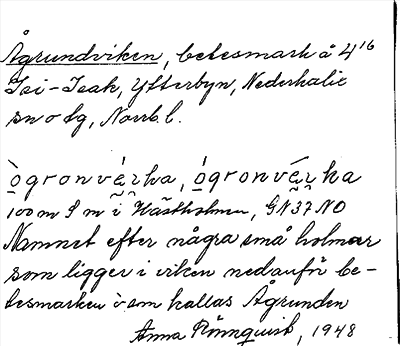 Ågrundviken, betesmark å 4¹⁶
Isi-Isak, Ytterbyn, Nederkalix
sn o tg, Norrb. l.
ògronvę́rka, ógronvę̀rka
100 m S m i Hästholmen, GN37 NO
Namnet efter några små holmar
som ligger i viken nedanför be-
tesmarken o som kallas Ågrunden
Anna Rönnquist, 1948